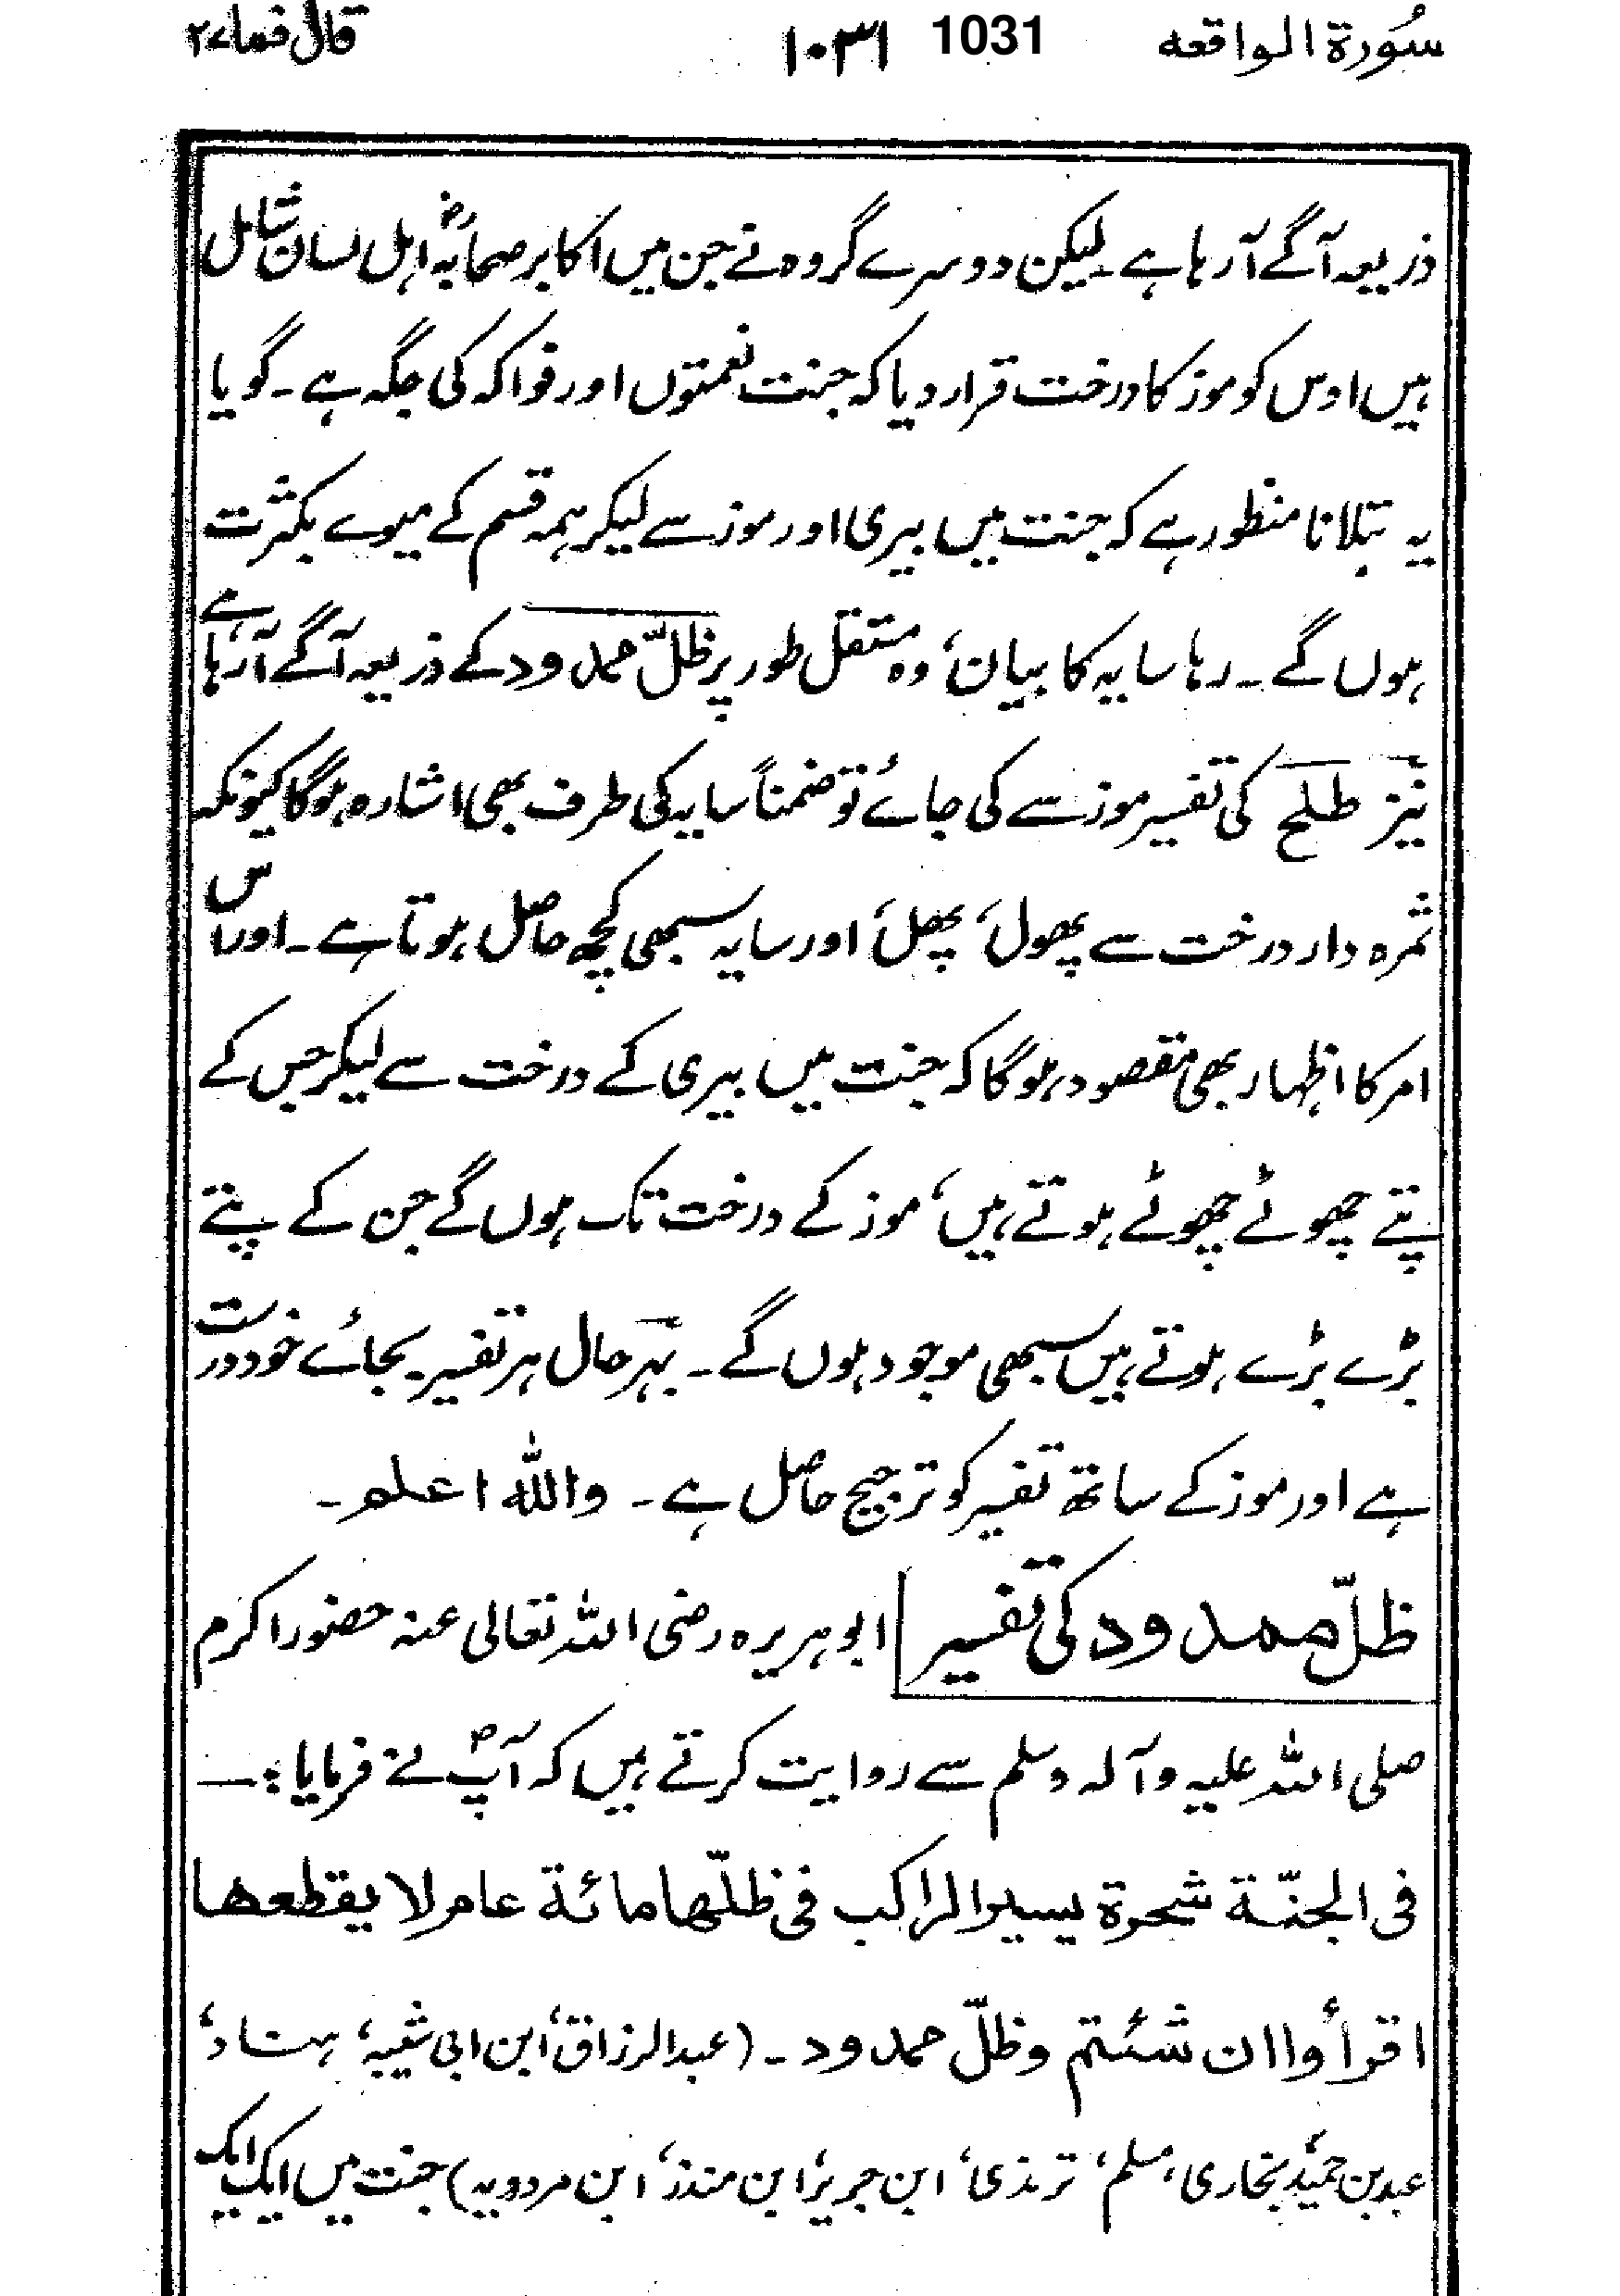 سُورة الواقعه 1031 ۱۰۳۱ قال فما ۲۷
ذریعہ آگے آرہا ہے۔ لیکن دوسرے گروہ نے جن میں اکابر صحابہؓ اہل لسان شامل
ہیں اوس کو موز کا درخت قرار دیا کہ جنت نعمتوں اور فواکہ کی جگہ ہے۔ گویا
یہ بتلانا منظور ہے کہ جنت میں بیری اور موز سے لیکر ہمہ قسم کے میوے بکثرت
ہوں گے۔ رہا سایہ کا بیان، وہ مستقل طور پر ظلّ ممدود کے ذریعہ آگے آرہا ہے
نیز طلح کی تفسیر موز سے کی جائے تو ضمناً سایہ کی طرف بھی اشارہ ہوگا کیونکہ
ثمرہ دار درخت سے پھول، پھل، اور سایہ سبھی کچھ حاصل ہوتا ہے۔ اور اس
امر کا اظہار بھی مقصود ہوگا کہ جنت میں بیری کے درخت سے لیکر جس کے
پتے چھوٹے چھوٹے ہوتے ہیں، موز کے درخت تک ہوں گے جن کے پتے
بڑے بڑے ہوتے ہیں سبھی موجود ہوں گے۔ بہر حال ہر تفسیر بجائے خود درست
ہے اور موز کے ساتھ تفسیر کو ترجیح حاصل ہے۔ واللہ اعلم۔
ظلّ ممدود کی تفسیر ابو ہریرہ رضی اللہ تعالی عنہ حضور اکرم
صلی اللہ علیہ وآلہ وسلم سے روایت کرتے ہیں کہ آپؐ نے فرمایا :۔
فی الجنّة شجرة یسیر الراکب فی ظلّھا مائة عام لا یقطعھا
اقرأوا ان شئتم وظلّ ممدود۔ (عبدالرزاق، ابن ابی شیبہ، ہناد،
عبد بن حمید، بخاری، مسلم، ترمذی، ابن جریر، ابن منذر، ابن مردویہ) جنت میں ایک ایک